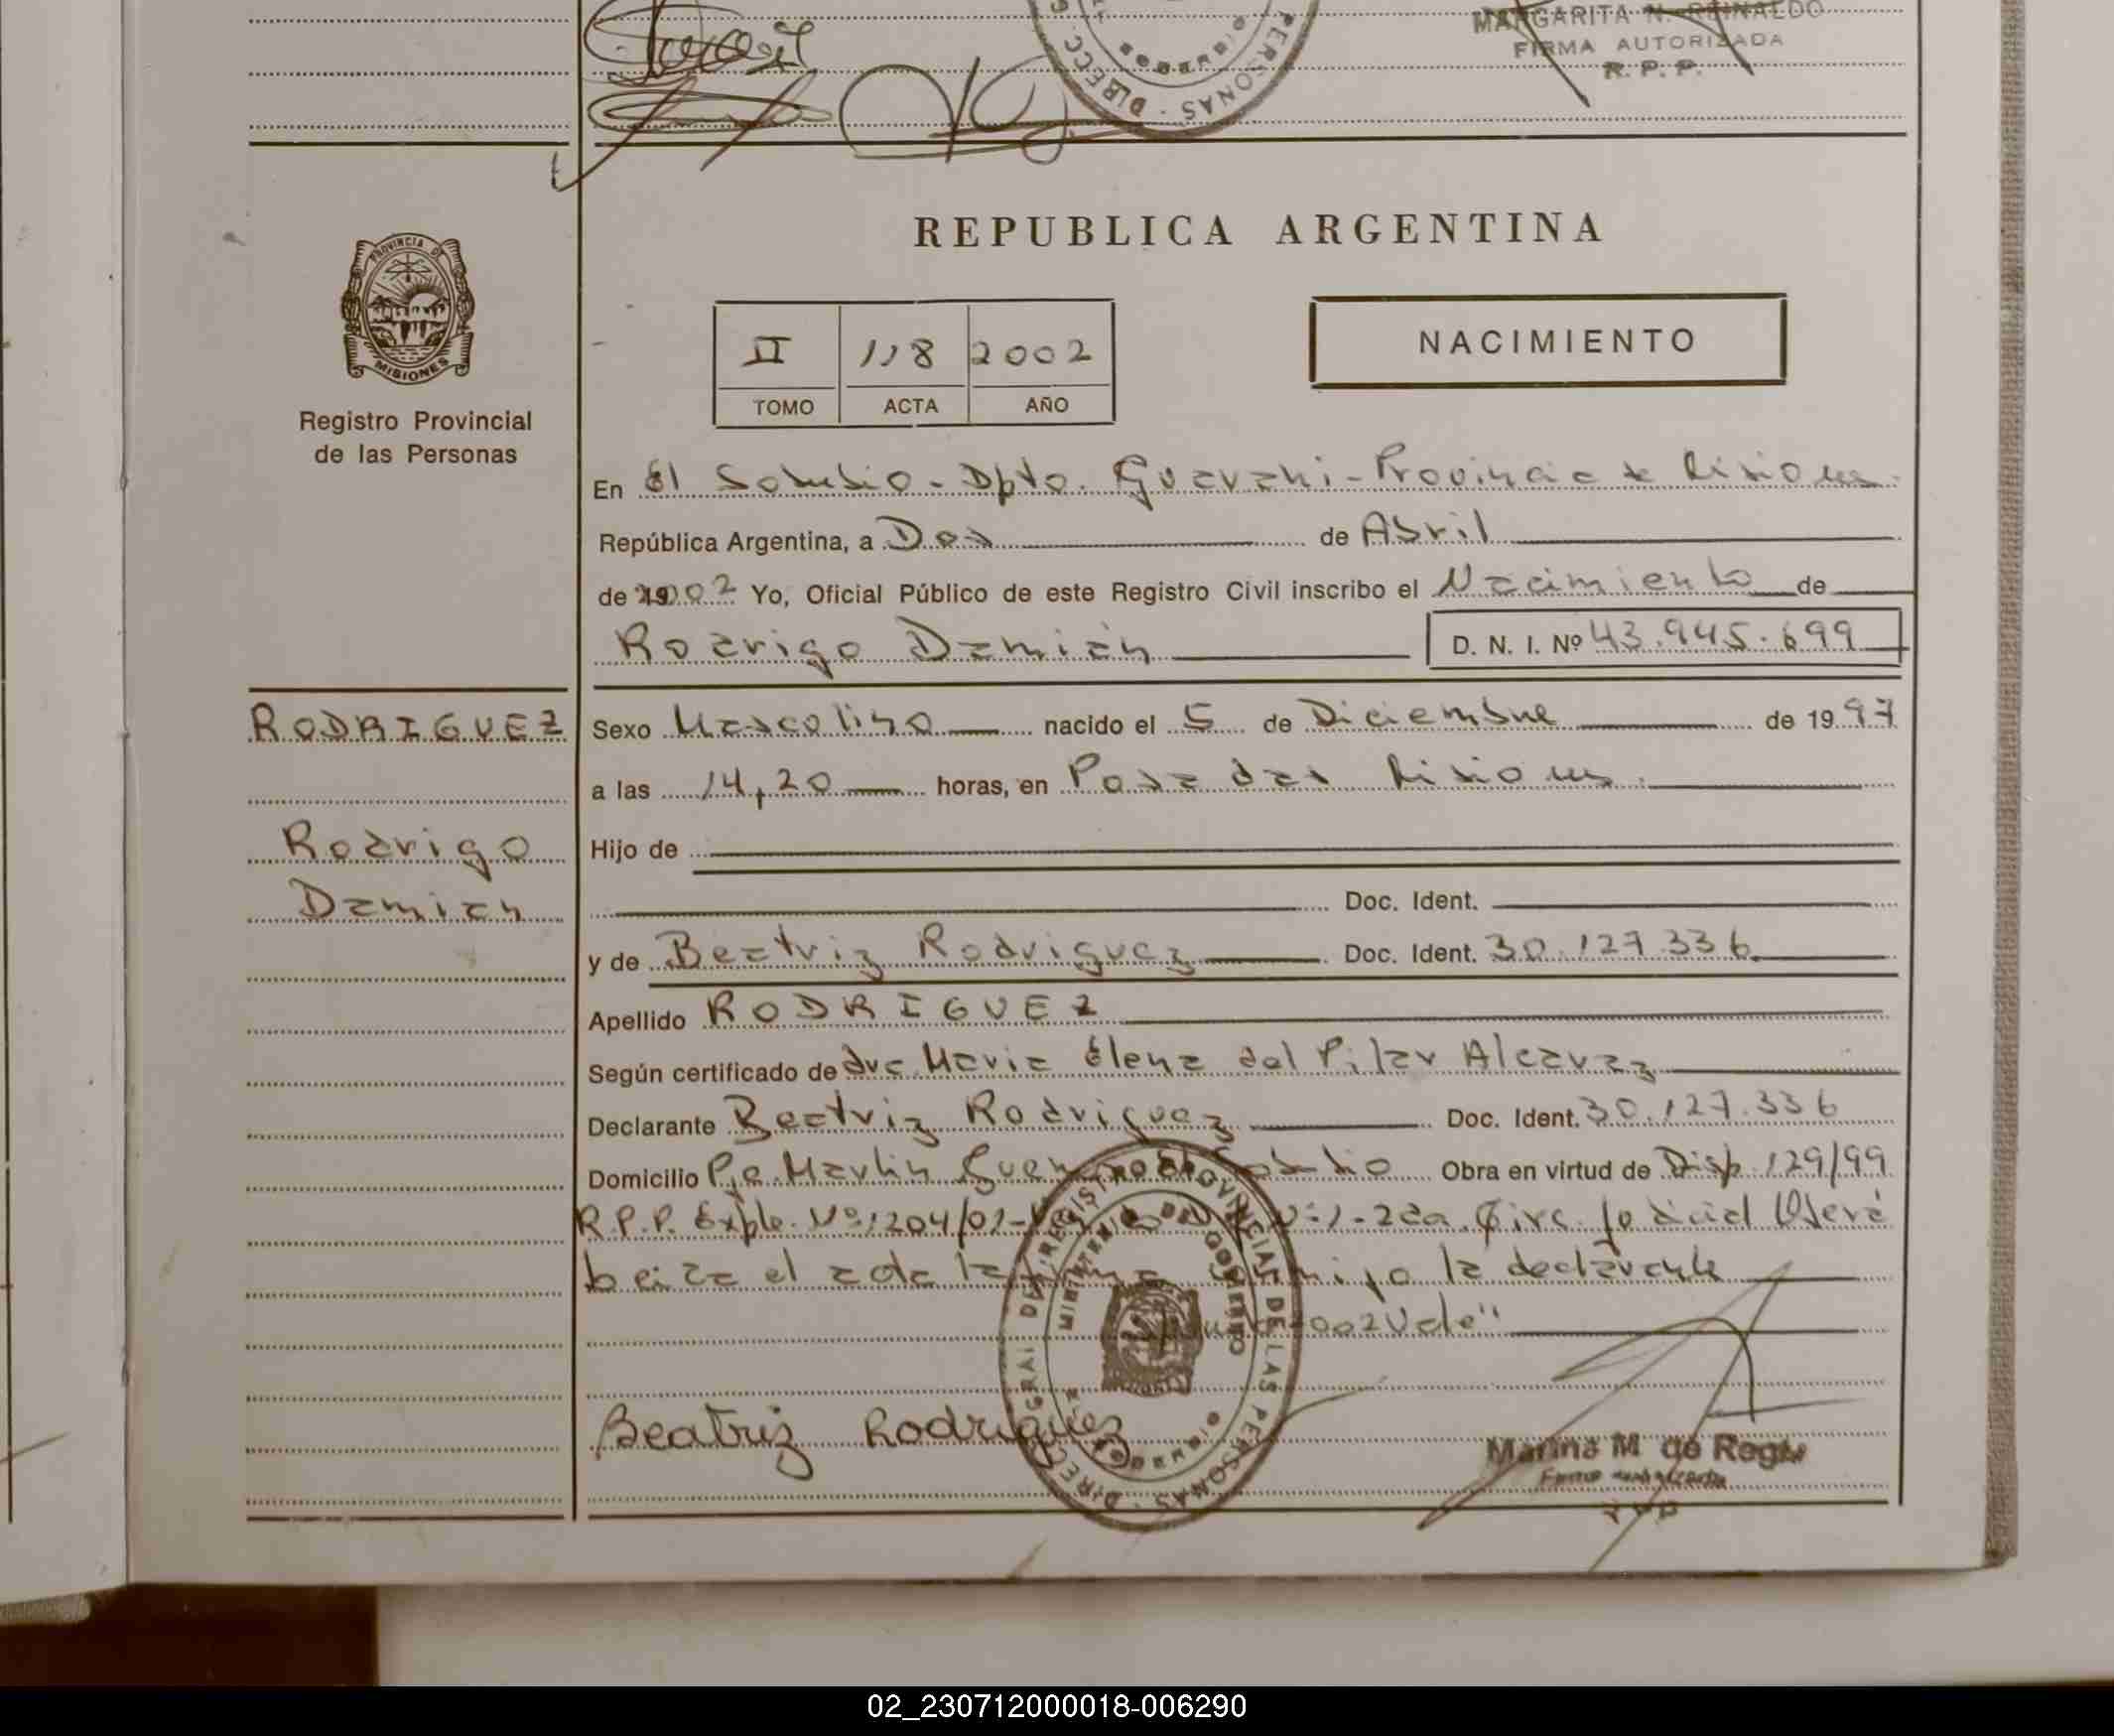 MARGARITA N. REINALDO
FIRMA AUTORIZADA
R. P. P.
PERSONAS - DIRECC
PROVINCIA DE
MISIONES
Registro Provincial
de las Personas
REPUBLICA ARGENTINA
II 118 2002
TOMO ACTA AÑO
NACIMIENTO
En El Soberbio - Dpto. Guarani - Provincia de Misiones
República Argentina, a Dos de Abril
de 2002 Yo, Oficial Público de este Registro Civil inscribo el Nacimiento de
Rodrigo Damián D. N. I. Nº 43.945.699
RODRIGUEZ
Rodrigo
Damian
Sexo Masculino nacido el 5 de Diciembre de 1997
a las 14,20 horas, en Posadas Misiones.
Hijo de
Doc. Ident.
y de Beatriz Rodriguez Doc. Ident. 30.127.336
Apellido RODRIGUEZ
Según certificado de dra Maria Elena del Pilar Alcaraz
Declarante Beatriz Rodriguez Doc. Ident. 30.127.336
Domicilio Pje. Martin Soberbio Obra en virtud de Disp. 129/99
R.P.P. Expte. Nº 1204/01 - Nº 1 - 2da Circ. Judicial Oberá
el acta la declarante
2002 Vale"
REGISTRO PROVINCIAL DE LAS PERSONAS - DIRECC GRAL DEL
MINISTERIO DE GOBIERNO
Beatriz Rodriguez
Marina M de Regis
Firma autorizada
02_230712000018-006290